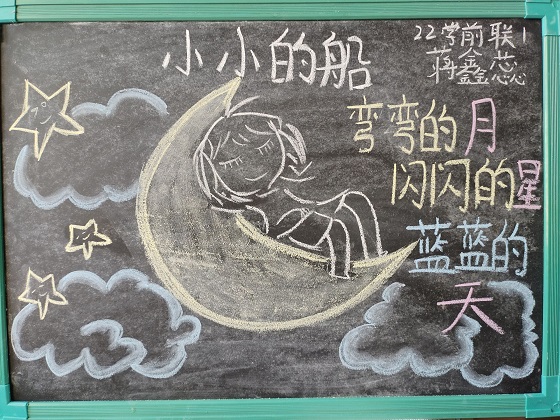 小小的船
22学前联1
蒋鑫蕊
弯弯的月
闪闪的星
蓝蓝的
天